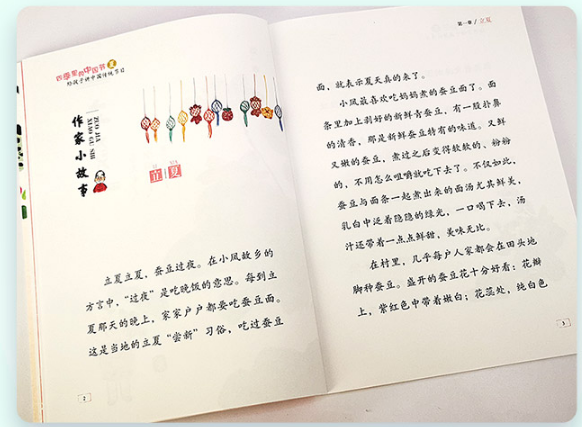 四季里的中国节 夏
给孩子讲中国传统节日
作家小故事
ZUO JIA
XIAO GU SHI
立夏
立夏立夏，蚕豆过夜。在小凤故乡的
方言中，“过夜”是吃晚饭的意思。每到立
夏那天的晚上，家家户户都要吃蚕豆面。
这是当地的立夏“尝新”习俗，吃过蚕豆
2
第一章 / 立夏
面，就表示夏天真的来了。
小凤最喜欢吃妈妈煮的蚕豆面了。面
条里加上剥好的新鲜青蚕豆，有一股扑鼻
的清香，那是新鲜蚕豆特有的味道。又鲜
又嫩的蚕豆，煮过之后变得软软的、粉粉
的，不用怎么咀嚼就吃下去了。不仅如此，
蚕豆与面条一起煮出来的面汤尤其鲜美，
乳白中泛着隐隐的绿光，一口喝下去，汤
汁还带着一点点鲜甜，美味无比。
在村里，几乎每户人家都会在田头地
脚种蚕豆。盛开的蚕豆花十分好看：花瓣
上，紫红色中带着嫩白；花蕊处，纯白色
3